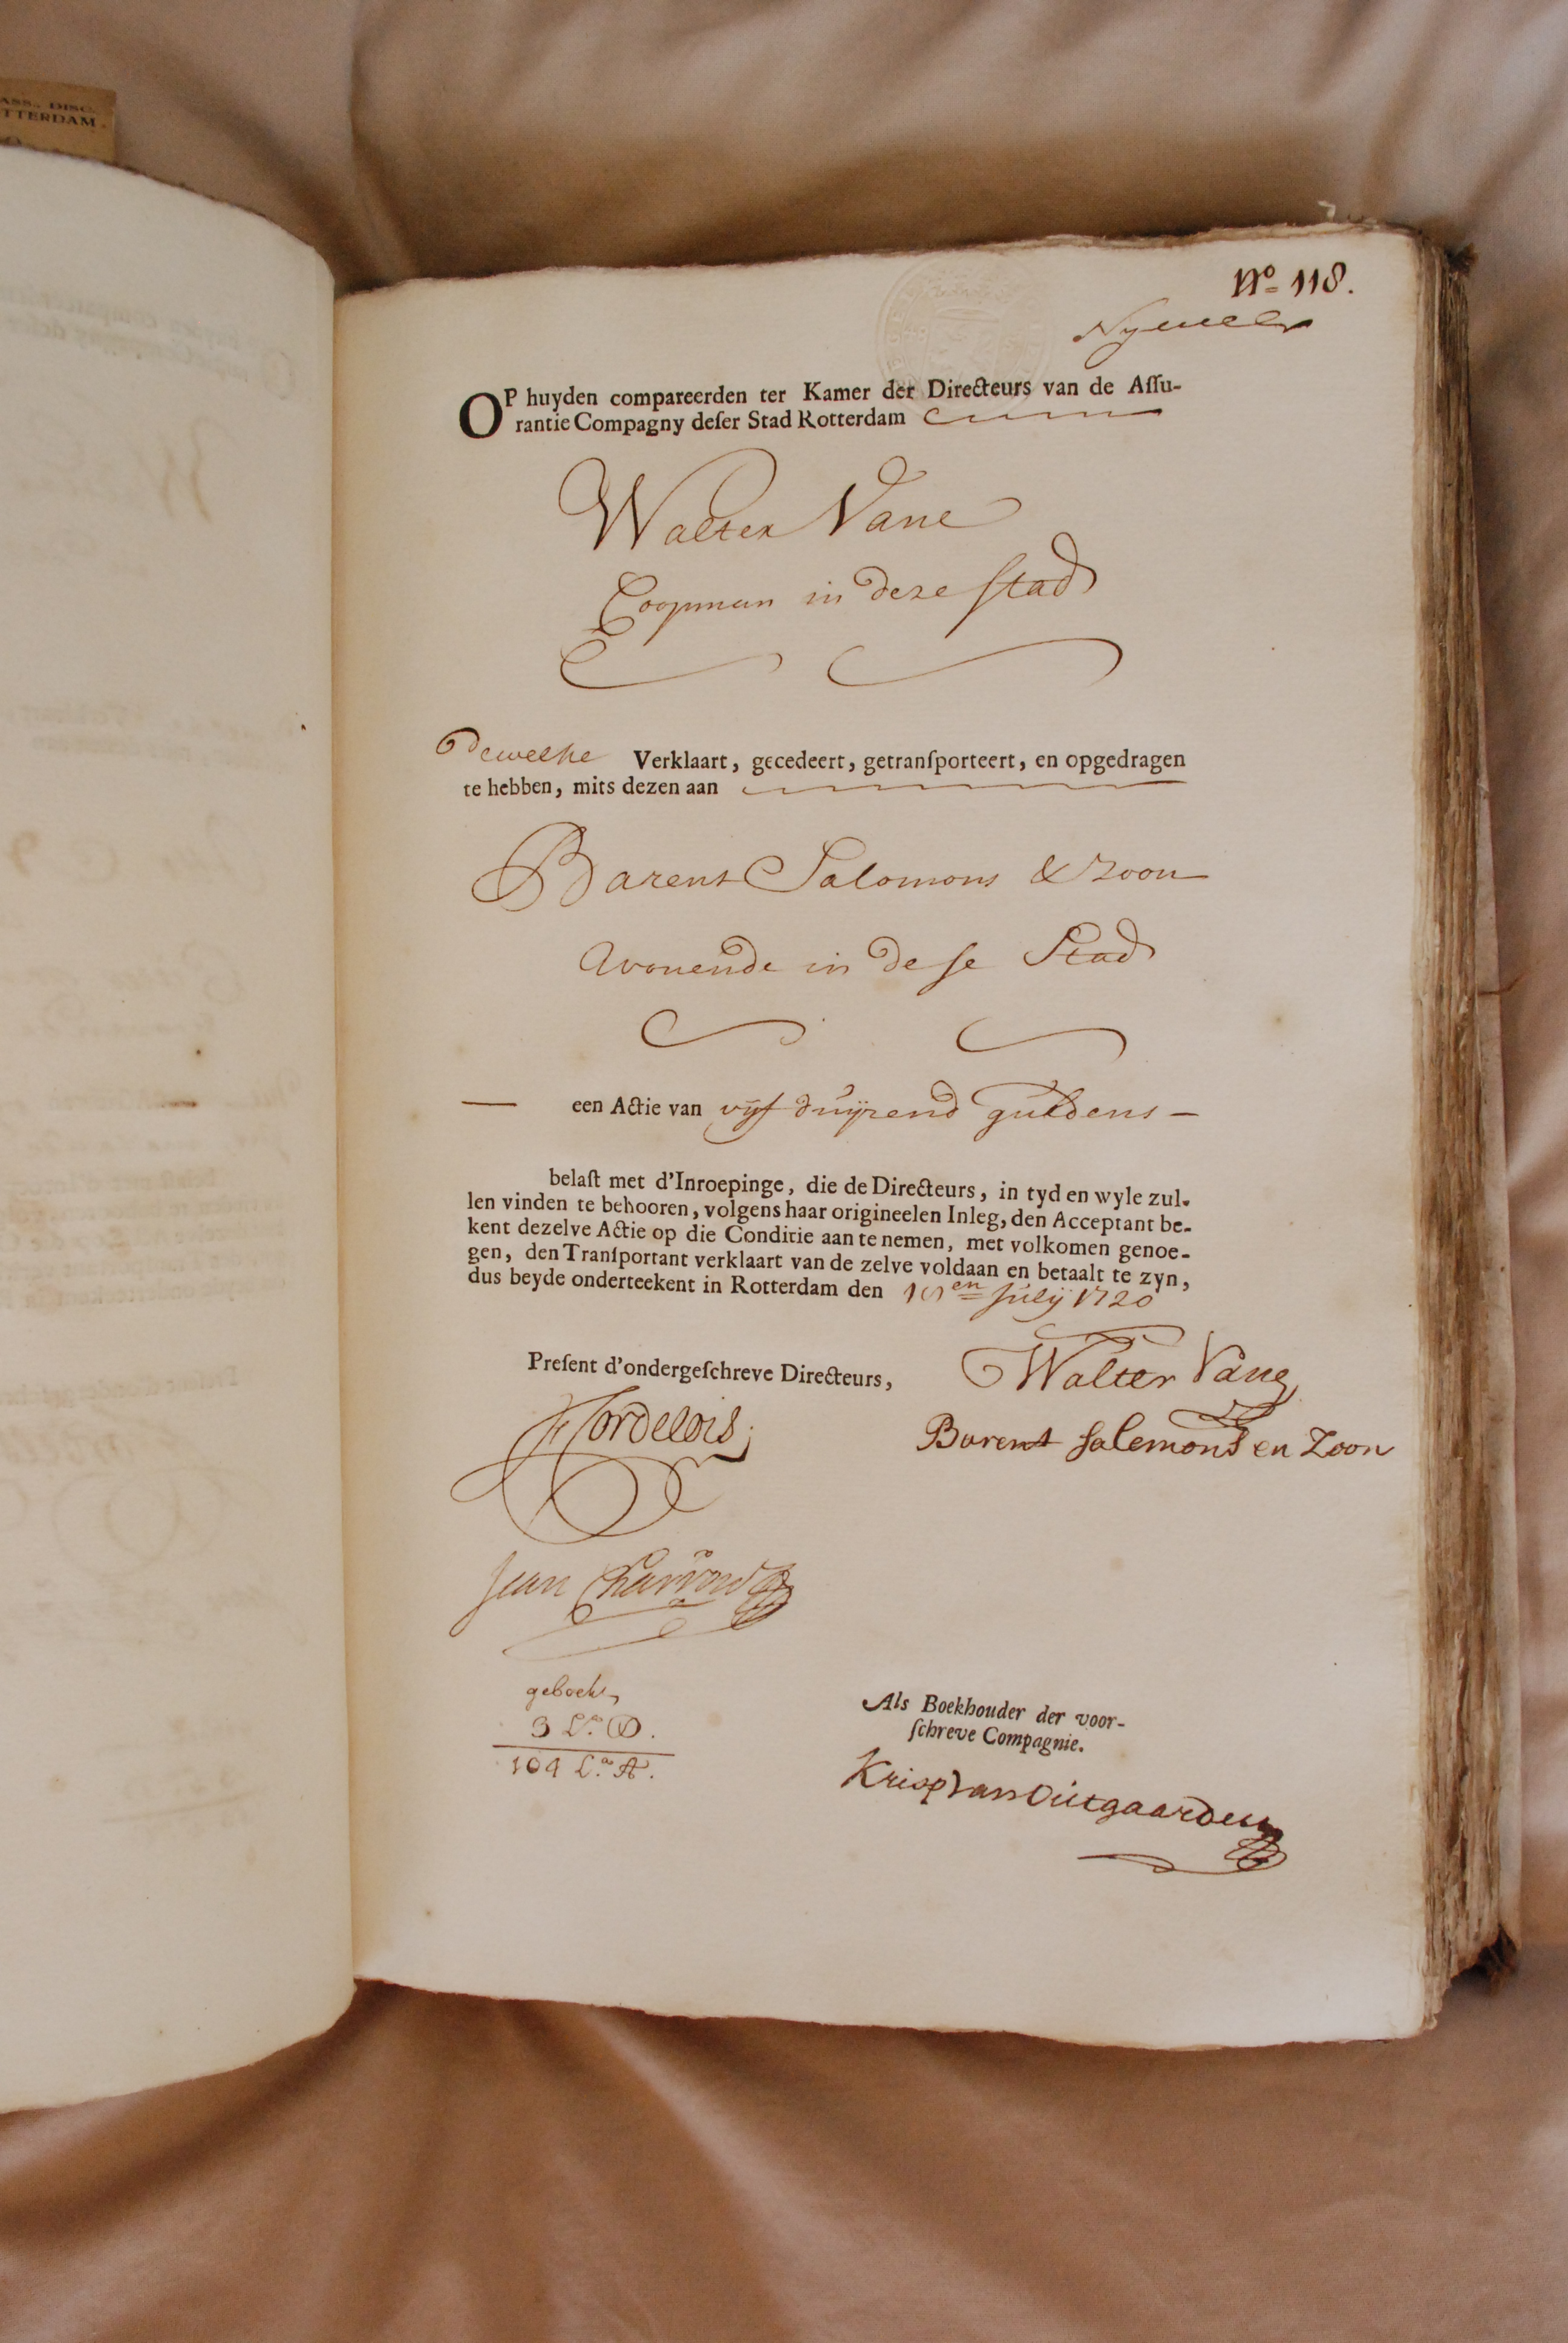 ASS. DISC.
TTERDAM.
No 118.
OP huyden compareerden ter Kamer der Directeurs van de Assu-
rantie Compagny deser Stad Rotterdam
Walter Vane
Coopman in deze stad
Dewelke Verklaart, gecedeert, getransporteert, en opgedragen
te hebben, mits dezen aan
Barent Salomons & Zoon
Wonende in dese Stad
een Actie van vyf duyzend guldens
belast met d'Inroepinge, die de Directeurs, in tyd en wyle zul-
len vinden te behooren, volgens haar origineelen Inleg, den Acceptant be-
kent dezelve Actie op die Conditie aan te nemen, met volkomen genoe-
gen, den Transportant verklaart van de zelve voldaan en betaalt te zyn,
dus beyde onderteekent in Rotterdam den July 1720
Present d'ondergeschreve Directeurs,
Walter Vane
Barent salemons en Zoon
Jean
geboekt
3 La D.
104 La A.
Als Boekhouder der voor-
schreve Compagnie.
Krisp van Outgaarden